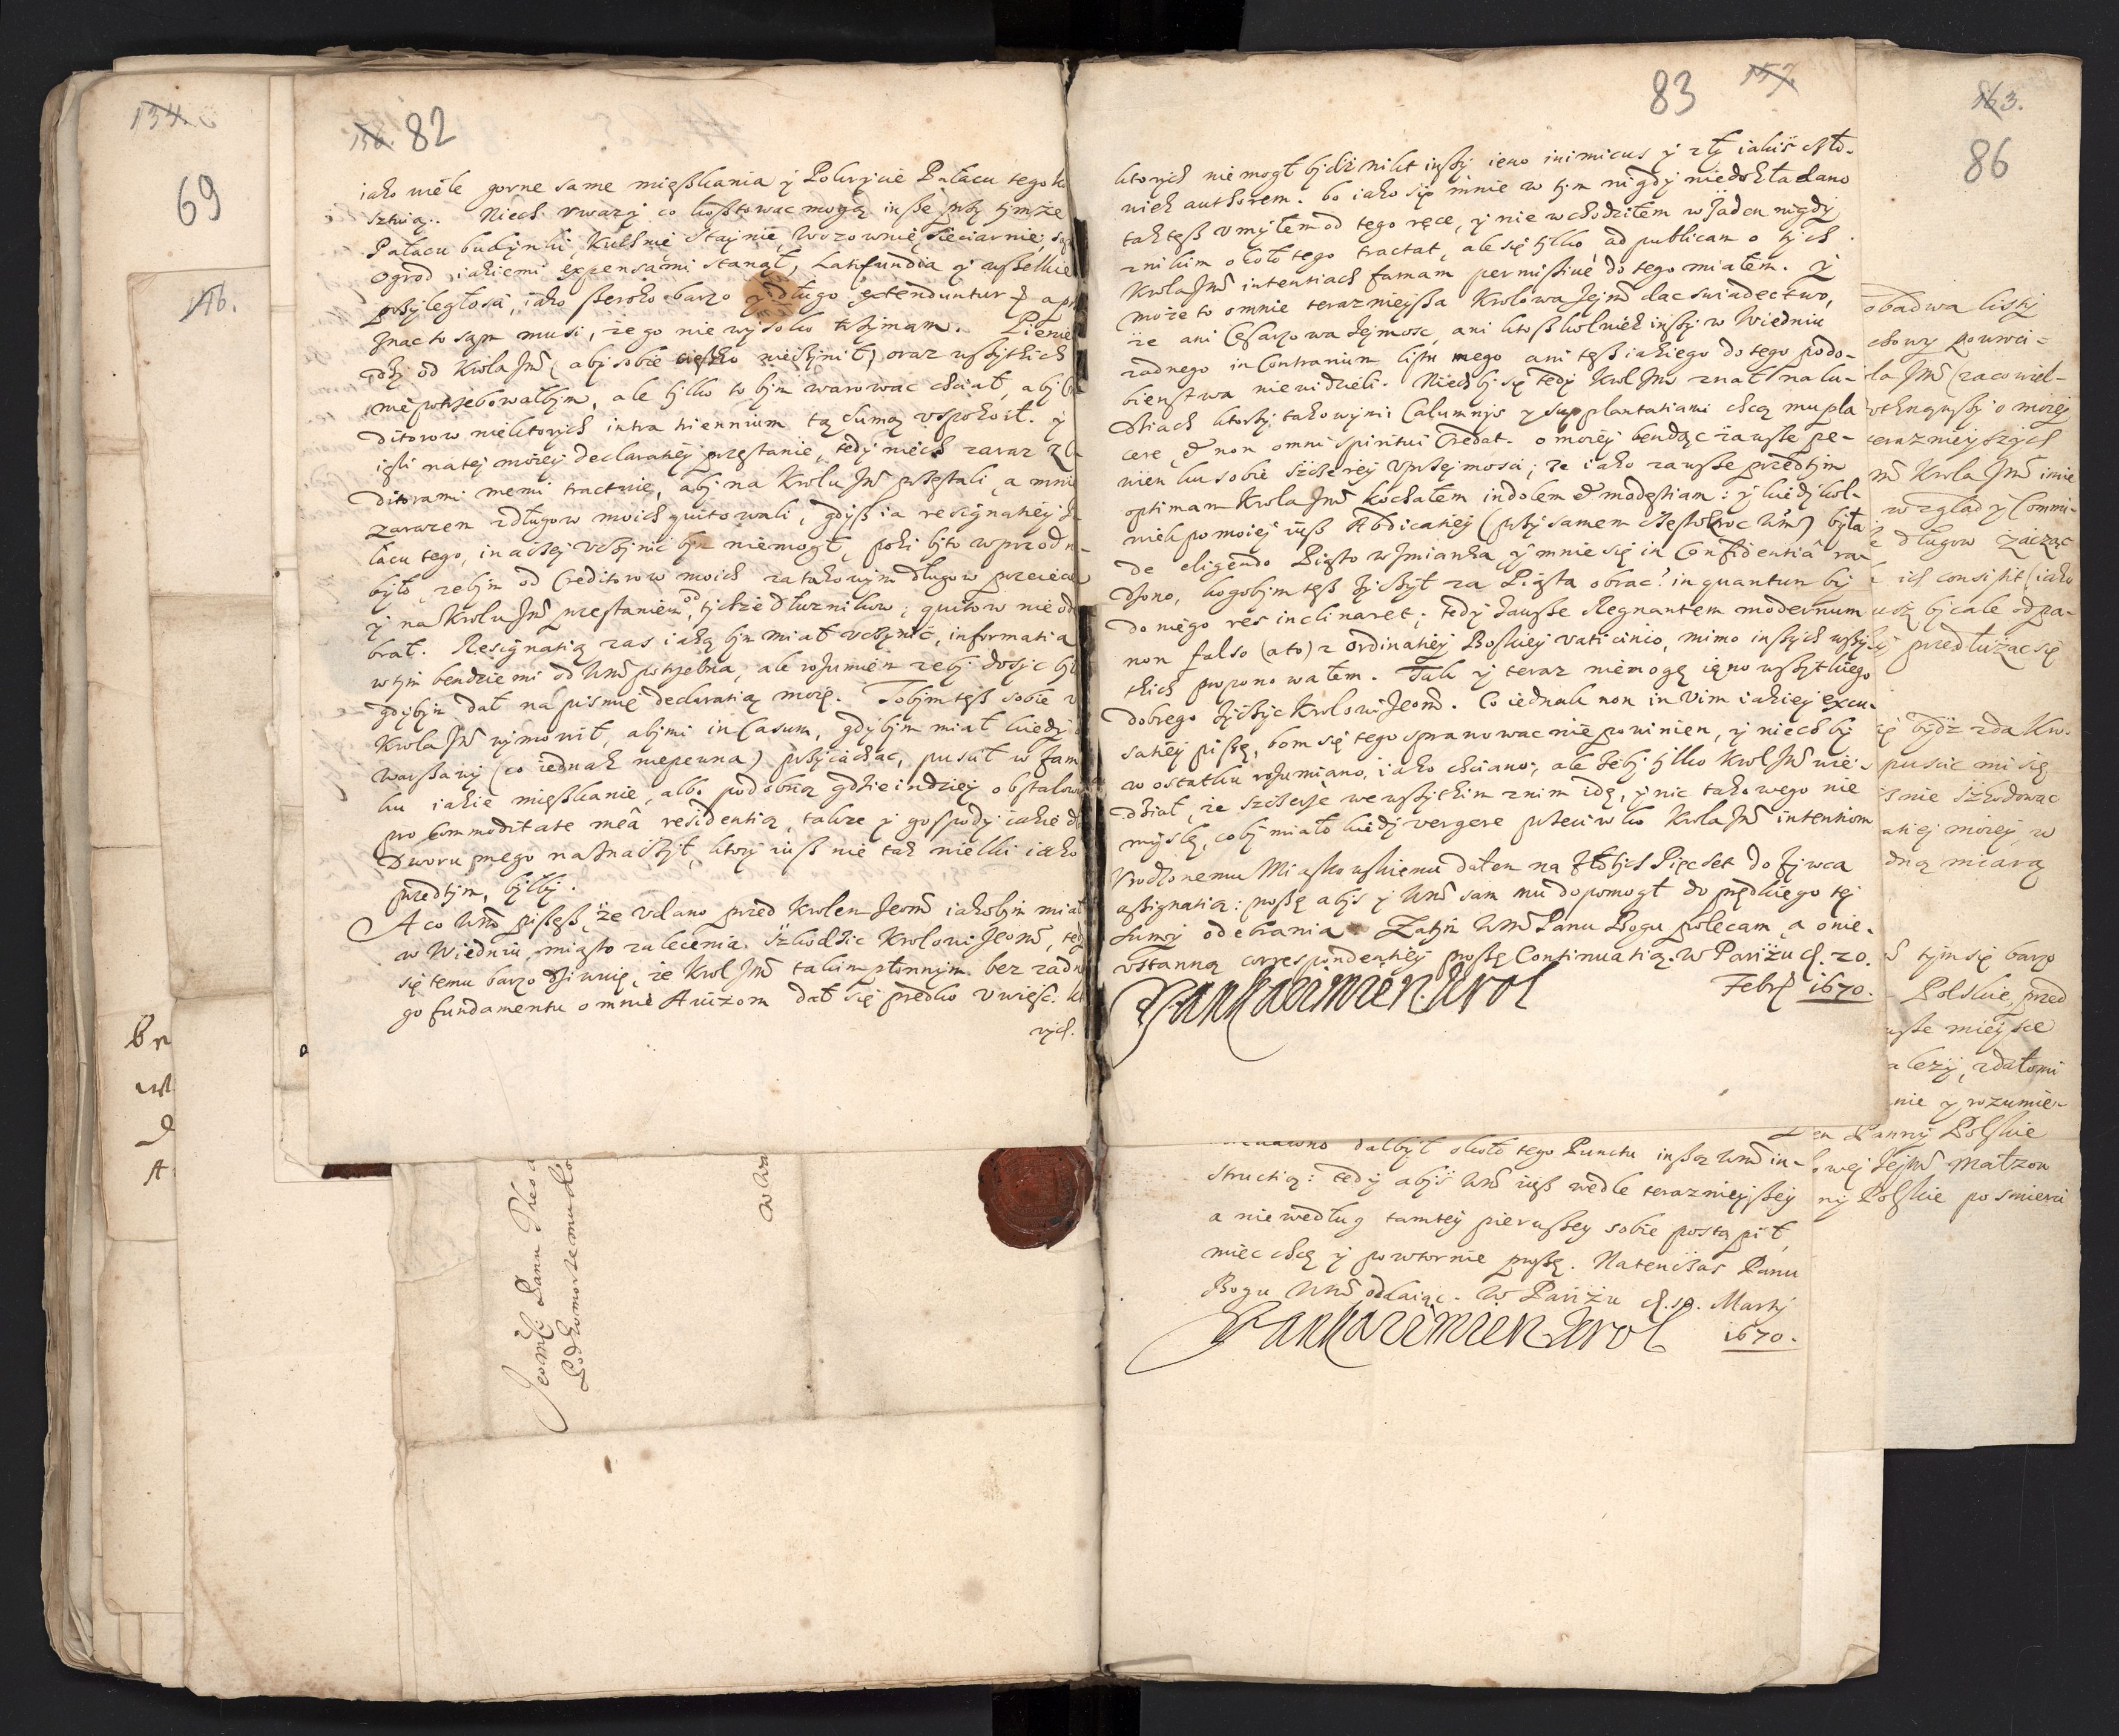 134.
69
146.
156. 82
iako wiele gorne same mięszkania y Pokrycie Pałacu tego k
sztuią. Niech uwazy co kosztowac mogą insze przy tymże
Pałacu budynki, Kuchnie, Staynie, Wozownie, Sieciarnie,
Ogrod iakiemi expensami stanął, Latifundia y wszelkie
przyległosci, iako szeroko barzo y długo extenduntur,
znac to sam musi, że go nie wysoko trzymam. Pienię
dzy od Krola JM (aby sobie ciężko nieczynił) oraz wszytkich
niepotrzebowałbym, ale tylko to bym warowac chciał, aby
ditorow niektorych intra triennium tą Sumą uspokoił. y
iesli na tej moiey declaratiey przestanie, tedy niech zaraz z
ditorami memi tractuie, aby na Krolu JM przestali, a mnie
zarazem z długow moich quitowali, gdysz ia resignatiey
łacu tego, inaczey uczynic bym niemogł, poki by to wprzod
było, zebym od Creditorow moich za takowym długow
y na Krolu JM przestaniem, od tychze dłuznikow, quitow nie od
brał. Resignatią zas iaką bym miał uczynic, informatia
w tym bendzie mi od WM potrzebna, ale rozumiem zeby dosyc
gdybym dał na pismie declaratią moię. To bym tesz sobie
Krola JM wymowił, aby mi in Casum, gdybym miał kiedy
Warszawy (co iednak niepewna) przyiachac, puscił w
ku iakie mięszkanie, albo podobną gdzieindziey
pro commoditate meâ residentią, takze y gospody iakie
Dworu mego naznaczył, ktory iusz nie tak wielki iako
przedtym, byłby.
A co WM piszesz, że udano przed Krolem Jeom iakobym miał
w Wiedniu miasto zalecenia szkodzic Krolowi Jeom,
się temu barzo dziwuię, że Krol JM takim płonnym bez zadne
go fundamentu o mnie Avizom dał się prędko uwiesc.
rych.
83 157.
ktorych nie mogł bydz nikt inszy ieno inimicus y zły iakis czło-
wiek authorem. bo iako się mnie w tym nigdy niedokładano
tak tesz umyłem od tego ręce, y nie wchodziłem w żaden nigdy
z nikim około tego tractat, ale się tylko ad publicam o tych
Krola JM intentiach famam permissiue do tego miałem. y
może to o mnie teraznieysza Krolowa Jejm dac swiadectwo,
że ani Cesarzowa Jejmosc, ani ktoszkolwiek inszy w Wiedniu
zadnego in Contrarium listu mego ani tesz iakiego do tego podo-
bienstwa niewidzieli. Niech by się tedy Krol JM znał na lu-
dziach ktorzy takowymi Calumnys y supplantatiami chcą mu pla
cere, & non omni spiritui Credat. o moiey bendąc zawsze pe-
wien ku sobie szczerey uprzejmosci; że iako zawsze przedtym
optimam Krola JM kochałem indolem & modestiam: y kiedy kol-
wiek po moiej iusz Abdicatiey (przy samem częstokroc WM) była
de eligendo Piasto wzmianka y mnie się in Confidentiâ ra-
dzono, kogobym tesz życzył za Piasta obrac? in quantum by
do niego res inclinaret; tedy zawsze Regnantem modernum
non falso (ato) z Ordinatiey Boskiey vaticinio, mimo inszych wszy-
tkich proponowałem. Tak y teraz niemogę ieno wszytkiego
dobrego życzyc Krolowi Jeom. Co iednak non in Vim iakiey excu-
satiey piszę, bom się tego sprawowac nie powinien, y niech by
w ostatku rozumiano, iako chciano; ale żeby tylko Krol JM wie-
dział, że szczerze we wszytkim z nim idę, y nic takowego nie
myslę, coby miało kiedy vergere przeciwko Krola JM intentiom
Urodzonemu Miaskowskiemu dałem na złotych Pięcset do Żywca
assignatią: proszę abys y WM sam mu dopomogł do prędkiego tej
sumy odebrania. Zatym WM Panu Bogu polecam, a o nie-
ustanną correspondentiey proszę Continuatią. W Pariżu d. 20.
Febr. 1670.
Jan Kazimierz Krol
dałbył około tego Punctu inszą WM in-
structią: tedy abys WM iusz wedle teraznieyszey
a nie według tamtey pierwszey sobie postąpił,
miec chcę y powtornie proszę. Natenczas Panu
Bogu WM oddaiąc. W Pariżu d. Martij
1670.
Jan Kazimierz Krol
163.
86
obadwa listy
la JM (zaco wiel-
o moiey
teraznieyszych
Krola JM imie
wzgląd y Commi-
długow zacząc
ich consistit (iako
by cale odpa-
przedłużac się
bydz zda Kro
puscic mi się
nie szkodowac
atiej moiey, w
dną miarą
tym się barzo
Polskie, przed
miejsce
alezy, zdałomi
nie y rozumie-
Panny Polskie
wej Jejm Małzon
ny Polskie po smierci
Jeom Panu
Podkomorzemu